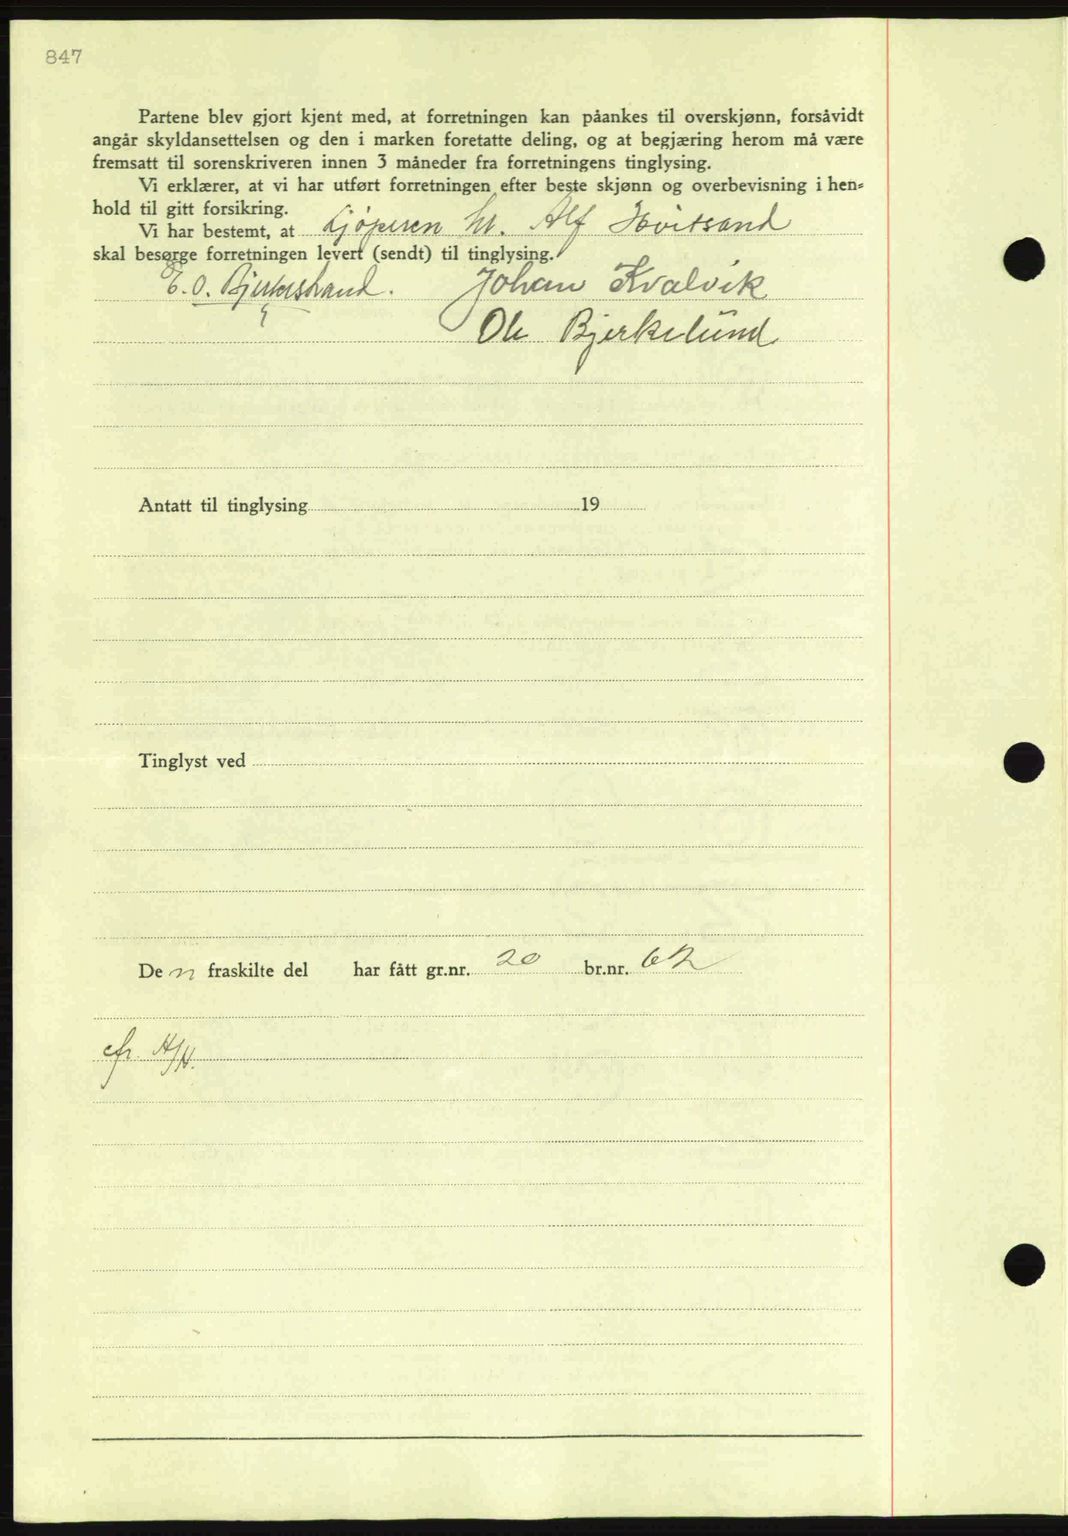 847
Partene blev gjort kjent med, at forretningen kan påankes til overskjønn, forsåvidt
angår skyldansettelsen og den i marken foretatte deling, og at begjæring herom må være
fremsatt til sorenskriveren innen 3 måneder fra forretningens tinglysing.
Vi erklærer, at vi har utført forretningen efter beste skjønn og overbevisning i hen=
hold til gitt forsikring.
Vi har bestemt, at kjøperen hr. Alf Hvitsand
skal besørge forretningen levert (sendt) til tinglysing.
E. O. Bjerkestrand. Johan Kvalvik
Ole Bjerkelund
Antatt til tinglysing 19
Tinglyst ved
De n fraskilte del har fått gr.nr. 20 br.nr. 62
cfr. H/H.